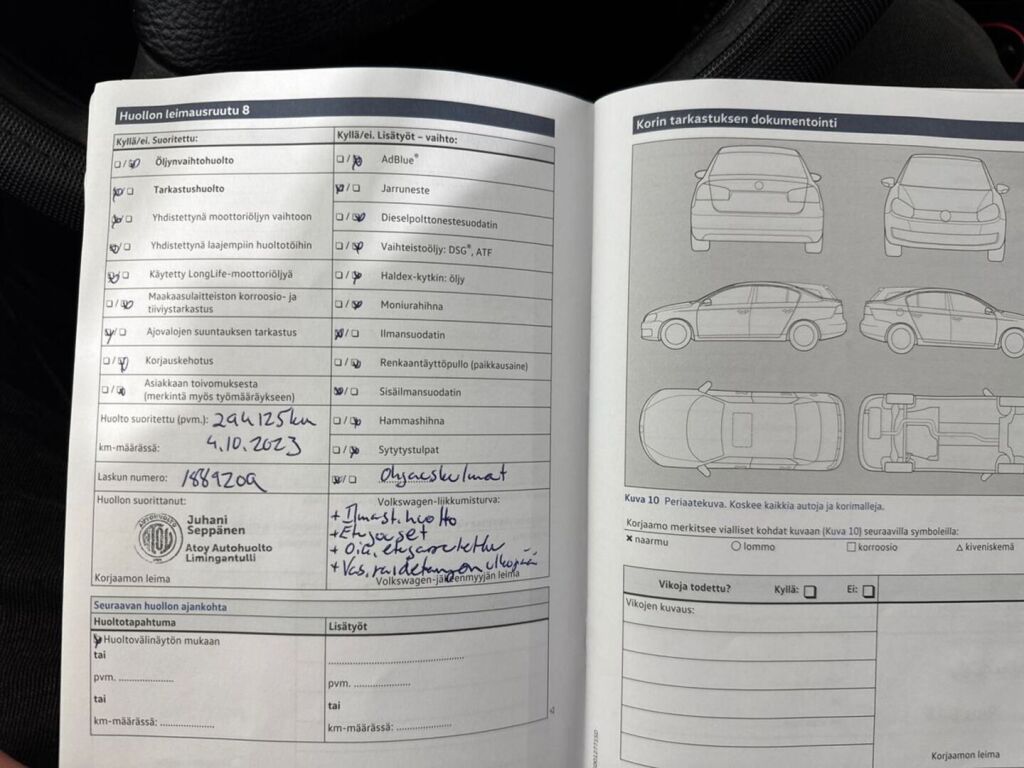 Huollon leimausruutu 8
Kyllä/ei. Suoritettu:
Öljynvaihtohuolto
Tarkastushuolto
Yhdistettynä moottoriöljyn vaihtoon
Yhdistettynä laajempiin huoltotöihin
Käytetty LongLife-moottoriöljyä
Maakaasulaitteiston korroosio- ja
tiiviystarkastus
Ajovalojen suuntauksen tarkastus
Korjauskehotus
Asiakkaan toivomuksesta
(merkintä myös työmääräykseen)
Huolto suoritettu (pvm.): 294125km
km-määrässä: 4.10.2023
Laskun numero: 188920a
Huollon suorittanut:
AUTOHUOLTO
Juhani
Seppänen
Atoy Autohuolto
Limingantulli
Korjaamon leima
Kyllä/ei. Lisätyöt – vaihto:
AdBlue®
Jarruneste
Dieselpolttonestesuodatin
Vaihteistoöljy: DSG®, ATF
Haldex-kytkin: öljy
Moniurahihna
Ilmansuodatin
Renkaantäyttöpullo (paikkausaine)
Sisäilmansuodatin
Hammashihna
Sytytystulpat
Ohjauskulmat
Volkswagen-liikkumisturva:
+ Ilmast.huolto
+ Etujouset
+ Vas. raidetangon ulkopää
Volkswagen-jälleenmyyjän leima
Seuraavan huollon ajankohta
Huoltotapahtuma
Lisätyöt
Huoltovälinäytön mukaan
tai
pvm. ....................
tai
km-määrässä: ....................
pvm. ....................
tai
km-määrässä: ....................
Korin tarkastuksen dokumentointi
Kuva 10 Periaatekuva. Koskee kaikkia autoja ja korimalleja.
Korjaamo merkitsee vialliset kohdat kuvaan (Kuva 10) seuraavilla symboleilla:
× naarmu ○ lommo □ korroosio △ kiveniskemä
Vikoja todettu? Kyllä: Ei:
Vikojen kuvaus:
Korjaamon leima